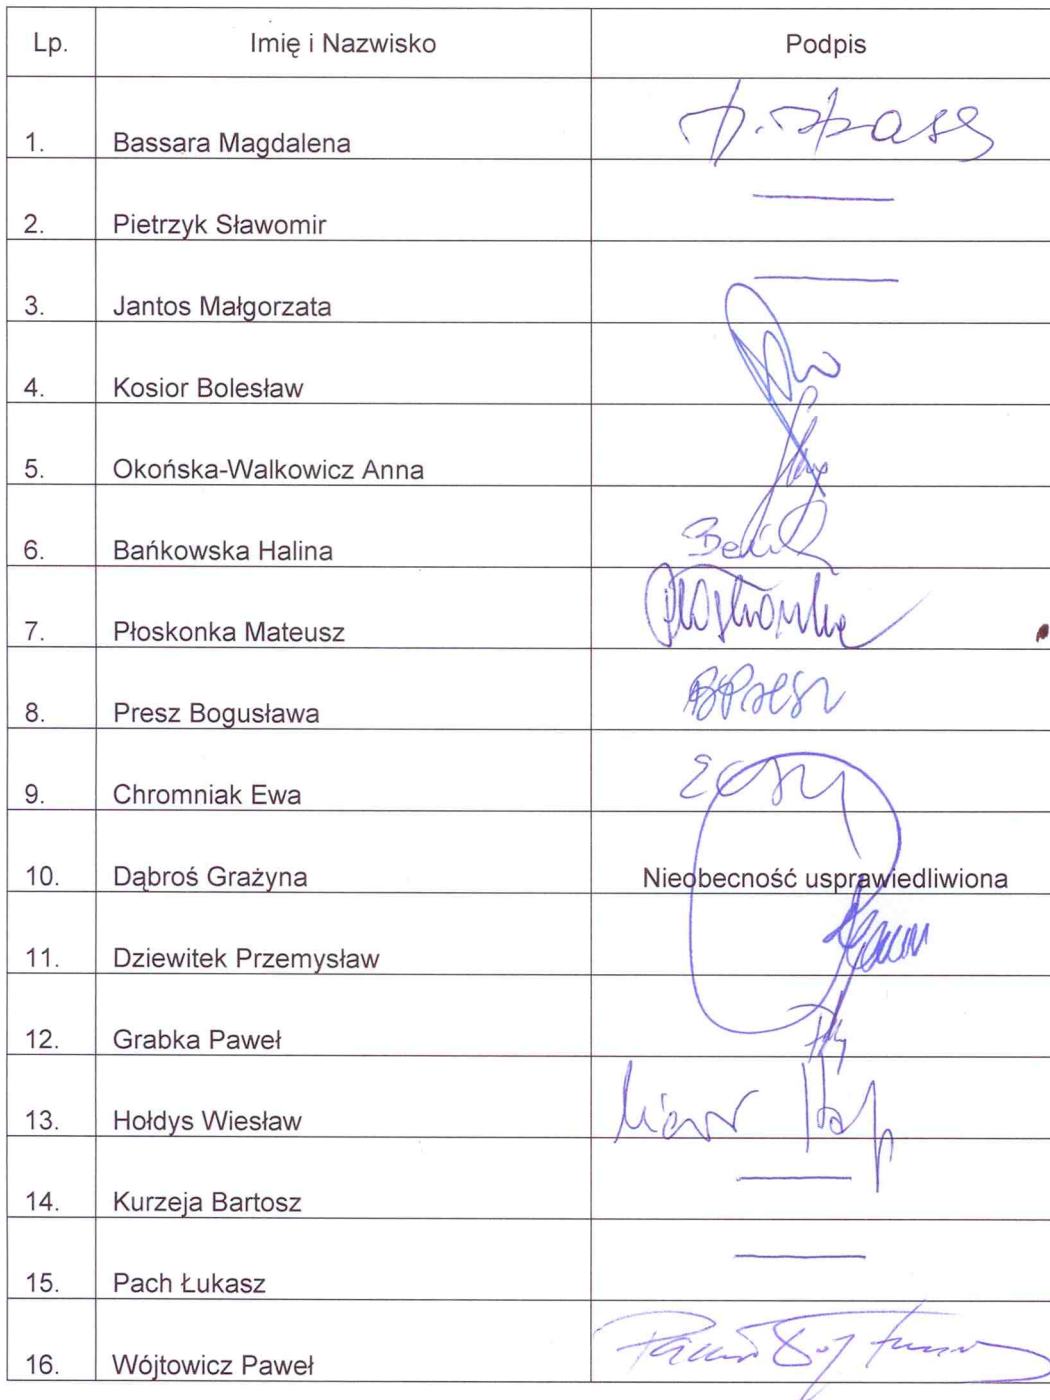 Lp. Imię i Nazwisko Podpis
1. Bassara Magdalena
2. Pietrzyk Sławomir
3. Jantos Małgorzata
4. Kosior Bolesław
5. Okońska-Walkowicz Anna
6. Bańkowska Halina
7. Płoskonka Mateusz
8. Presz Bogusława
9. Chromniak Ewa
10. Dąbroś Grażyna Nieobecność usprawiedliwiona
11. Dziewitek Przemysław
12. Grabka Paweł
13. Hołdys Wiesław
14. Kurzeja Bartosz
15. Pach Łukasz
16. Wójtowicz Paweł